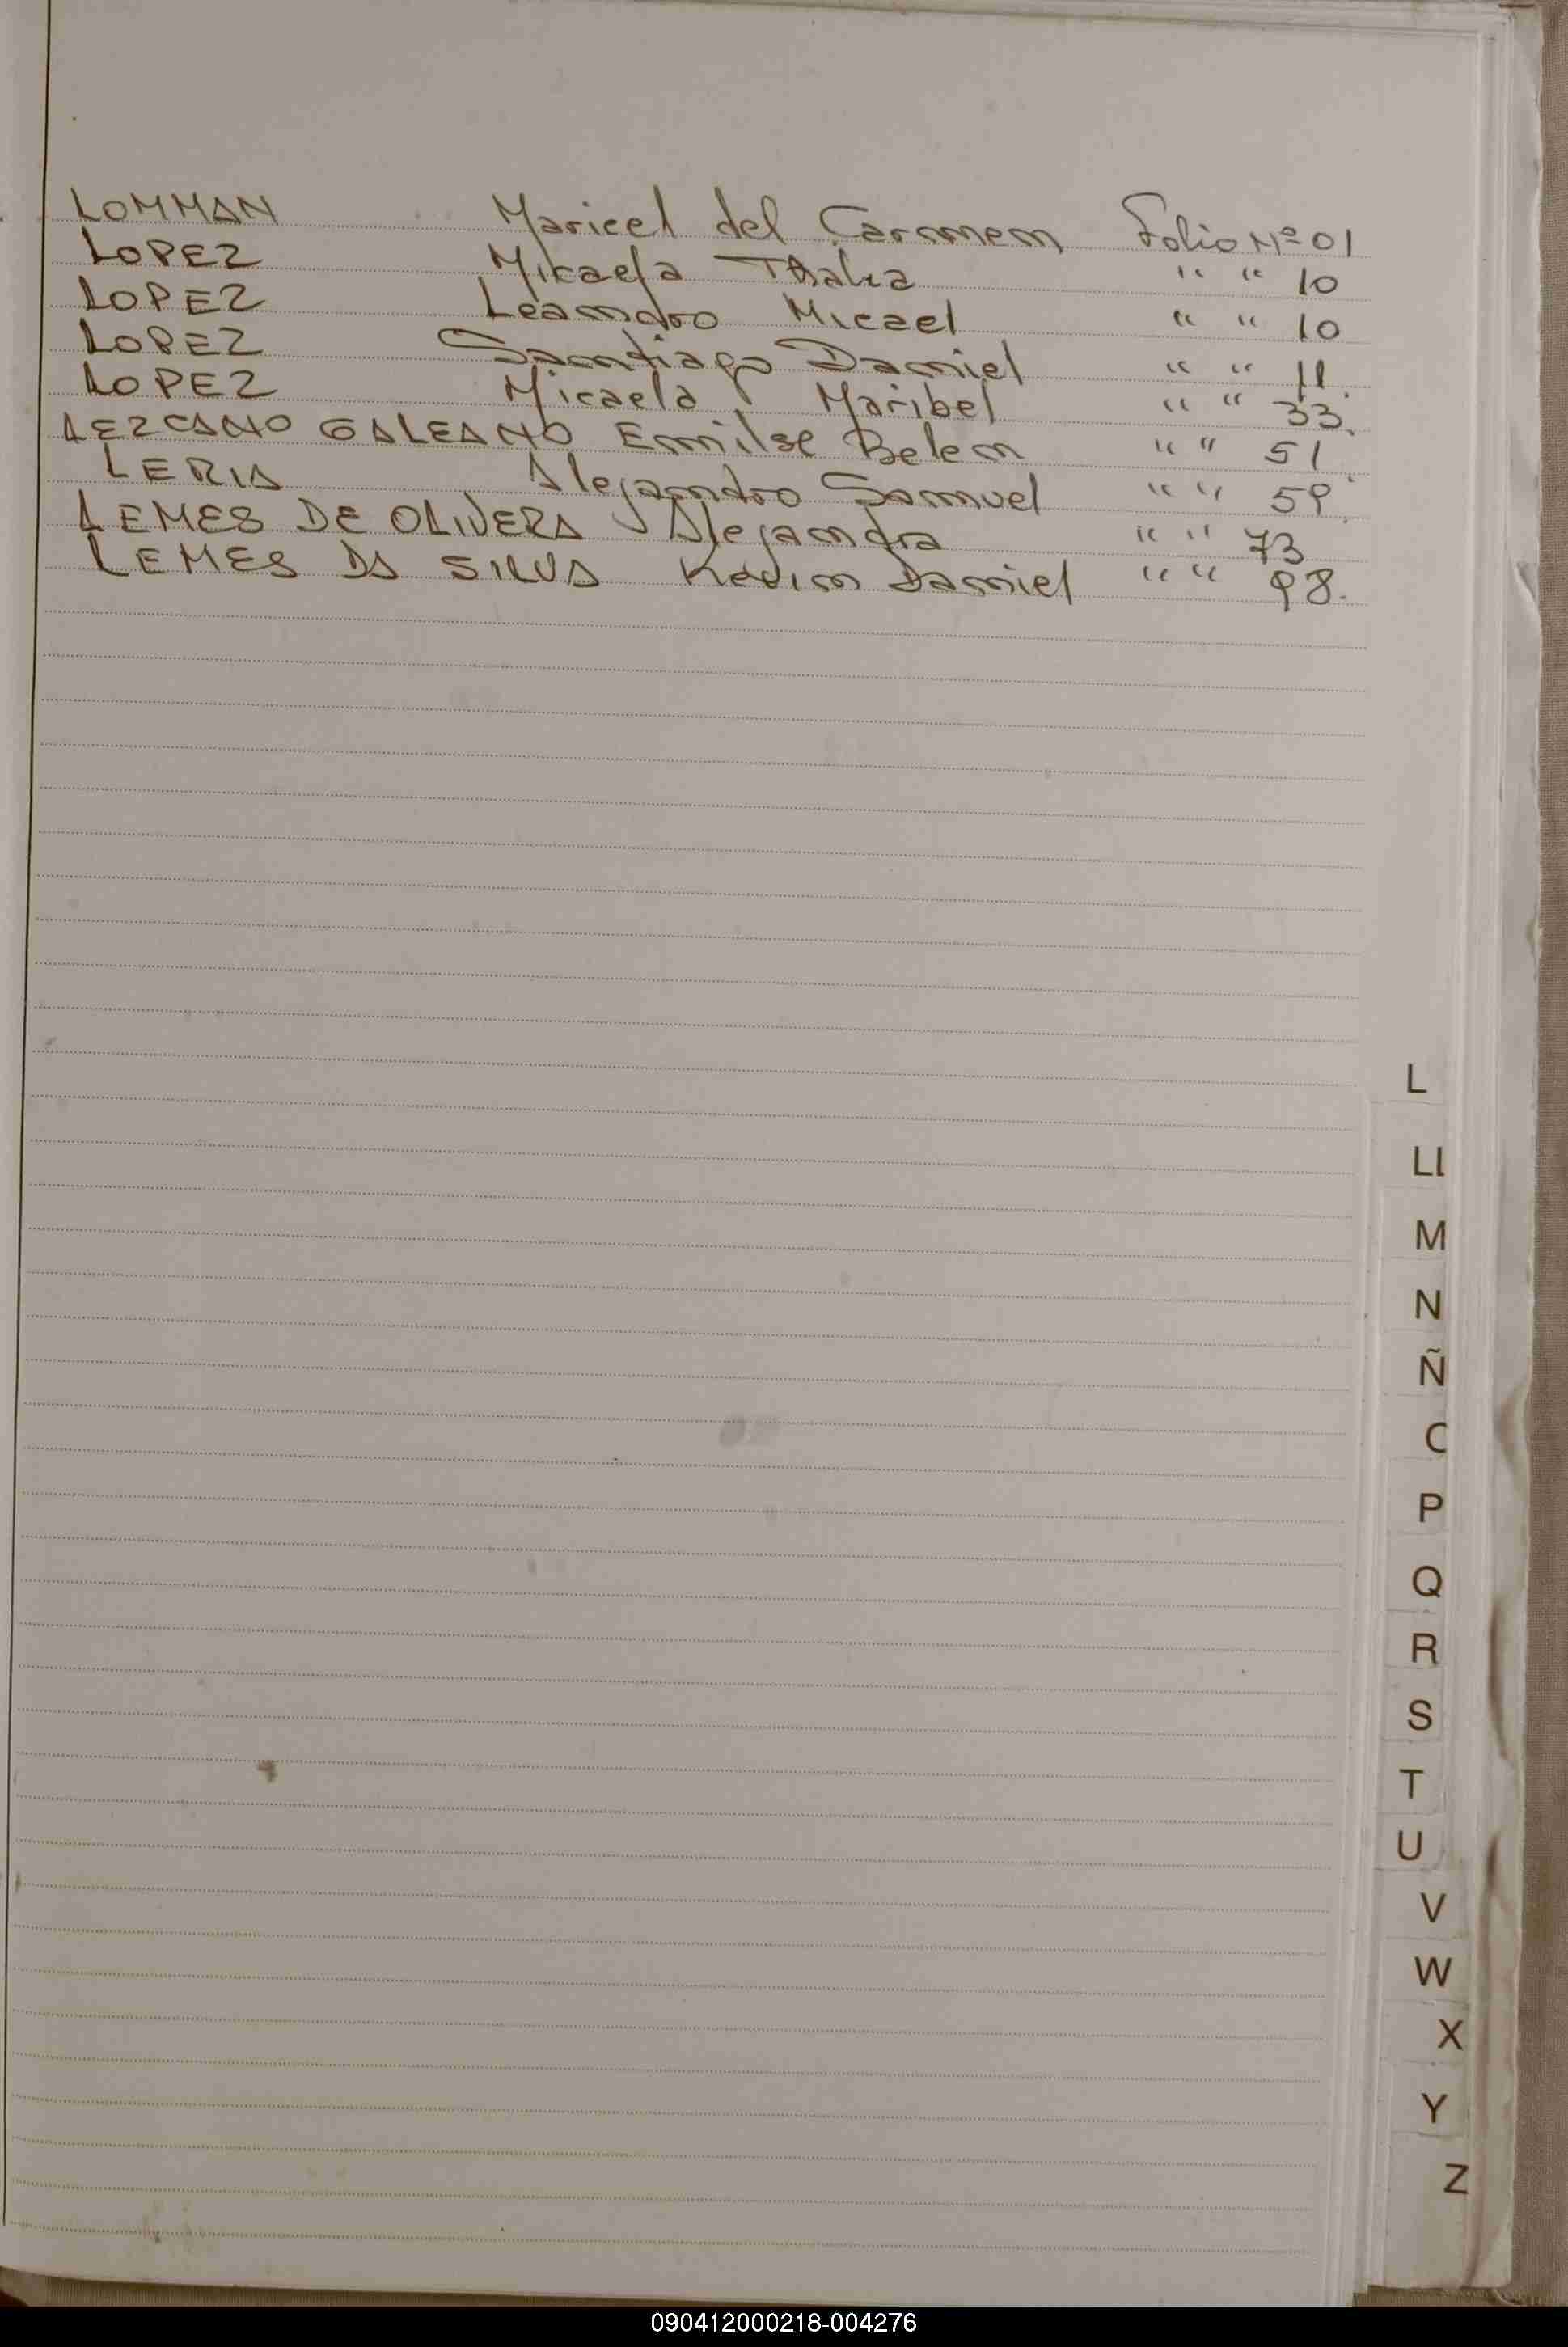 LOMMAN Maricel del Carmen Folio Nº 01
LOPEZ Mikaela Thalia " " 10
LOPEZ Leandro Micael " " 10
LOPEZ Santiago Daniel " " 11.
LOPEZ Micaela Maribel " " 33.
LEZCANO GALEANO Emilse Belen " " 51.
LERIA Alejandro Samuel " " 59.
LEMES DE OLIVERA Alejandra " " 73
LEMES DA SILVA Daniel " " 98.
L
Ll
M
N
Ñ
P
Q
R
S
T
U
V
W
X
Y
Z
090412000218-004276